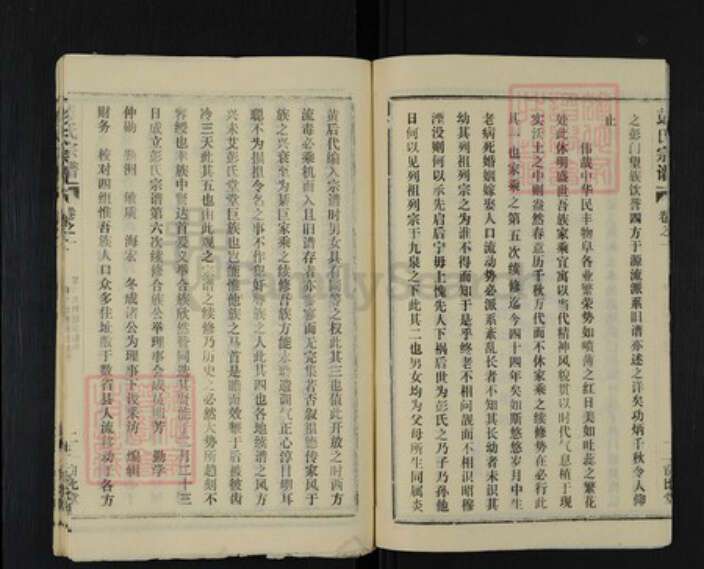 彭氏宗谱
卷之一
之彭门望族饮誉四方于源流派系旧谱亦述之详矣功炳千秋令人仰
止
伟哉中华民丰物阜各业繁荣势如喷薄之红日美如吐蕊之繁花
处此休明盛世吾族家乘宜寓以当代精神风貌贯以时代气息植于现
实沃土之中则盎然春意历千秋万代而不休家乘之续修势在必行此
其一也家乘之第五次续修迄今四十四年矣如斯悠悠岁月中生
老病死婚姻嫁娶人口流动势必派系紊乱长者不知其长幼者未识其
幼其列祖列宗之为谁不得而知于是乎终老不相问靓面不相识昭穆
湮没则何以承先启后宁毋上愧先人下祸后世为彭氏之乃子乃孙他
日何以见列祖列宗于九泉之下此其二也男女均为父母所生同属炎
黄后代编入宗谱时男女具有同等之权此其三也值此开放之时西方
流毒必乘机而入且旧谱存者亦寥寥而无完集若否叙祖德传家风于
族之兴衰至为綦巨家乘之续修吾族方能永聪遗训气正心淳目明耳
聪不为损祖令名之事不作奸好辱族之人此其四也各地续谱之风方
兴未艾彭氏堂堂巨族也岂能惟他族之马首是瞻而效颦于后被彼齿
冷三天此其五也由此观之宗谱之续修乃历史之必然大势所趋刻不
容缓也本族中贤达首爰义举合族欣然赞同选其贤能于二月二十三
日成立彭氏宗谱第六次续修合族公举理事会成员 芳 勤学
仲勋 洲 敏 海宏 冬成诸公为理事下拨采访 编辑
财务 校对四组惟吾族人口众多住址散于数省县人流移动于各方
氏宗谱
卷之一